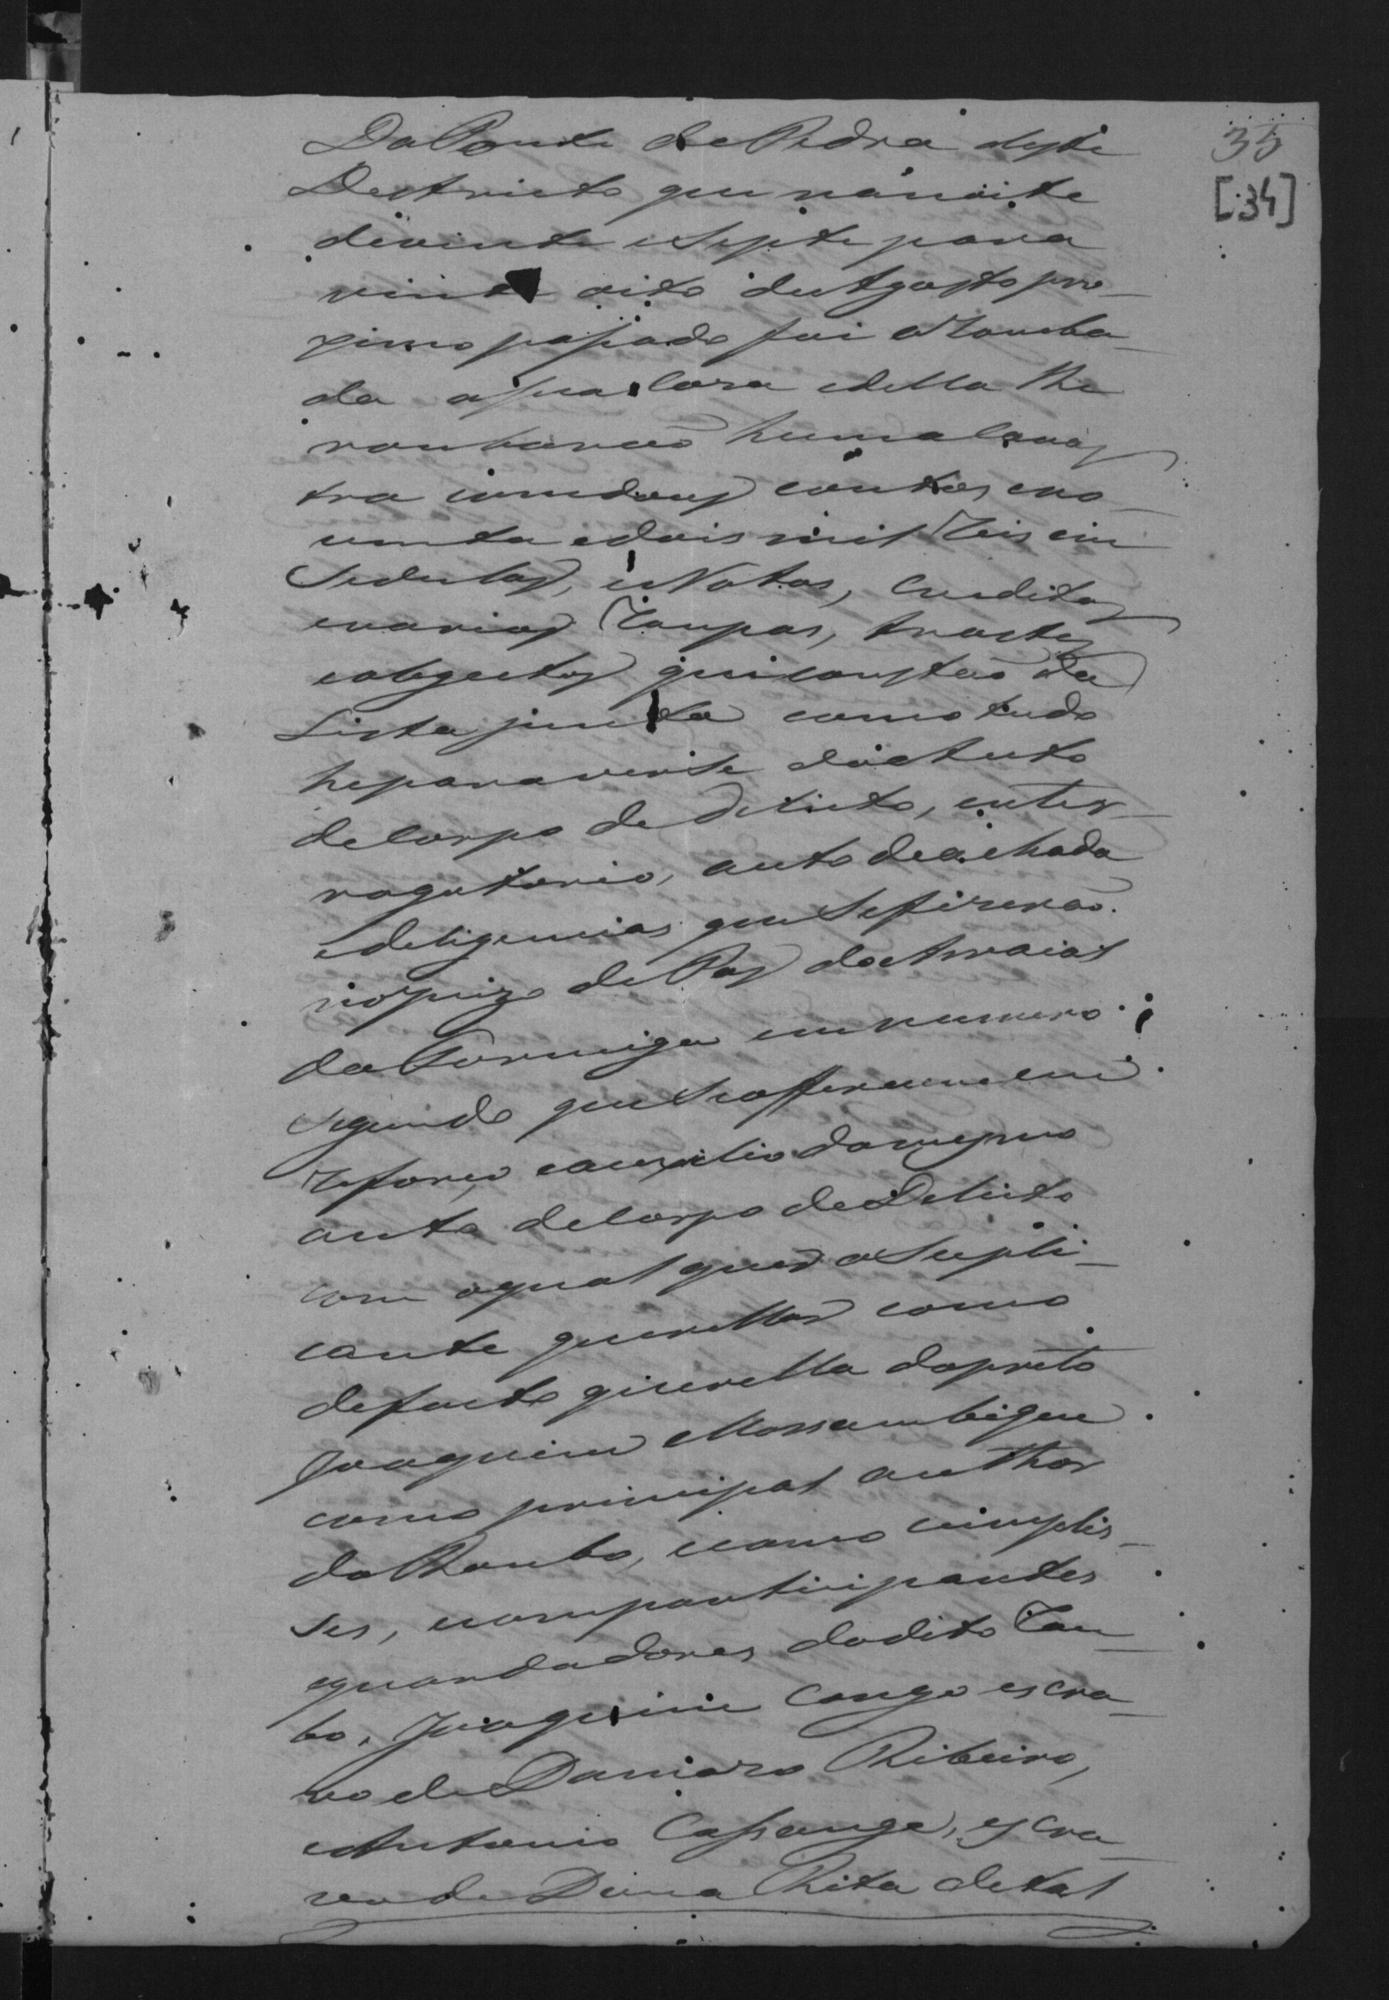 35
[34]
Da Ponte de Pedra deste
Destricto que na noite
de vinte e Septe para
vinte oito de Agosto pro-
ximo passado foi arromba-
da a sua Casa e della lhe
roubarão huma
tra com dous contos e no-
venta e dois mil Reis em
Sedulas, e Notas, Creditos
e varias Roupas, trastes
e obgectos que constão da
Lista junta como tudo
he para ver-se do Auto
de Corpo de Delicto, inter-
rogatorio, auto de achada
e deligencias que se fizerão
no Juizo de Paz do Arraial
da Formiga em numero
segundo que se offerecem em
reforço, e auxilio do mesmo
auto de Corpo de Delicto
com o qual quer o Supli-
cante querellar como
de facto querella do preto
Joaquim Mossambique
como principal author
do Roubo, e como complis-
ses, e comparticipantes
guardadores do dito Rou-
bo, Joaquim Congo escra-
vo de Damazo Ribeiro,
e Antonio Cassange, escra-
vo de Dona Rita de tal